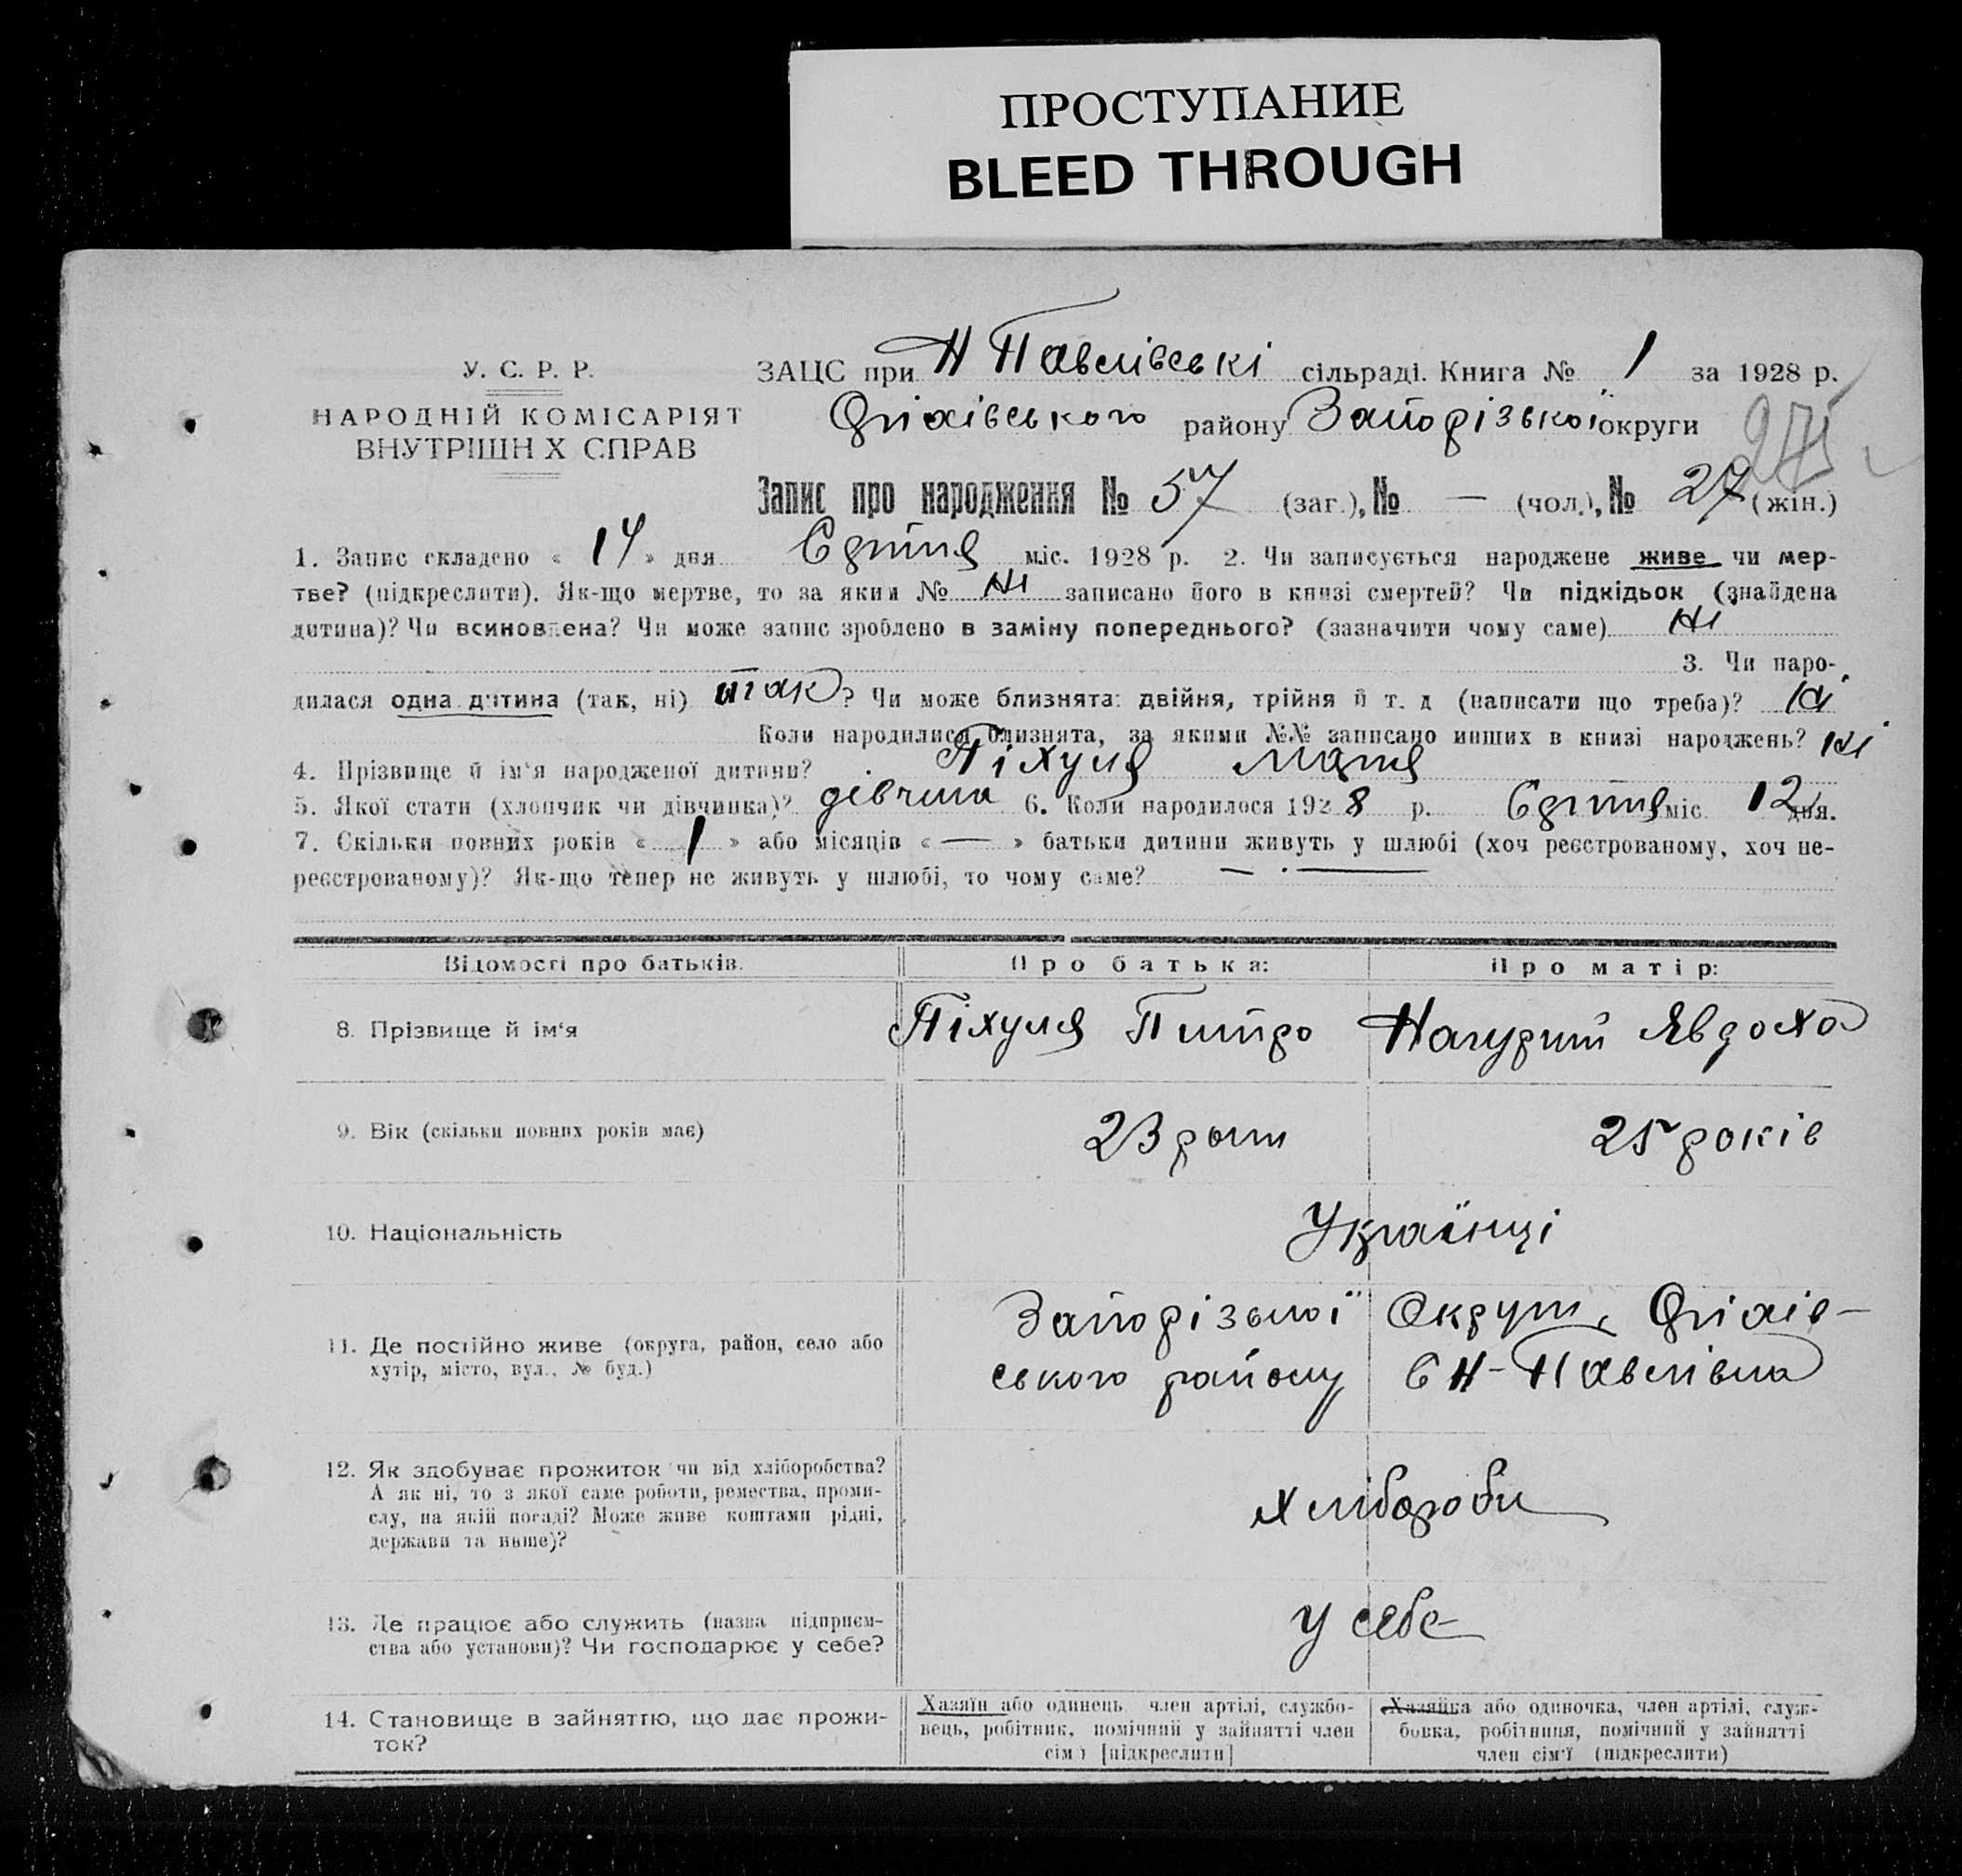 ПРОСТУПАНИЕ
BLEED THROUGH
У. С. Р. Р.
НАРОДНІЙ КОМІСАРІЯТ
ВНУТРІШН Х СПРАВ
ЗАЦС при Н Павлівські сільраді. Книга № 1 за 1928 р.
Оріхівського району Запорізької округи
275
Запис про народження № 57 (заг.), № — (чол.), № 27 (жін.)
1. Запис складено « 14 » дня Серпня міс. 1928 р. 2. Чи записується народжене живе чи мер-
тве? (підкреслити). Як-що мертве, то за яким № Ні записано його в книзі смертей? Чи підкідьок (знайдена
дитина)? Чи всиновлена? Чи може запис зроблено в заміну попереднього? (зазначити чому саме) Ні
3. Чи наро-
дилася одна дитина (так, ні) так? Чи може близнята: двійня, трійня й т. д (написати що треба)? Ні
Коли народилися близнята, за якими №№ записано инших в книзі народжень? Ні
4. Прізвище й ім'я народженої дитини? Піхуля Марія
5. Якої стати (хлопчик чи дівчинка)? дівчина 6. Коли народилося 1928 р. Серпня міс. 12 дня.
7. Скільки повних років « 1 » або місяців « — » батьки дитини живуть у шлюбі (хоч реєстрованому, хоч не-
реєстрованому)? Як-що тепер не живуть у шлюбі, то чому саме? —
Відомості про батьків. Про батька: Про матір:
8. Прізвище й ім'я Піхуля Питро Явдоха
9. Вік (скільки повних років має) 23 роки 25 років
10. Національність Українці
11. Де постійно живе (округа, район, село або Запорізької Округи, Оріхів-
хутір, місто, вул., № буд.) ського району С Н-Павлівка
12. Як здобуває прожиток чи від хліборобства?
А як ні, то з якої саме роботи, ремества, проми-
слу, на якій посаді? Може живе коштами рідні,
держави та инше)?
Хлібороби
13. Де працює або служить (назва підприєм-
ства або установи)? Чи господарює у себе?
У себе
14. Становище в зайняттю, що дає прожи-
ток?
Хазяїн або одинець член артілі, службо-
вець, робітник, помічний у зайнятті член
сім'ї [підкреслити]
Хазяйка або одиночка, член артілі, служ-
бовка, робітниця, помічний у зайнятті
член сім'ї (підкреслити)